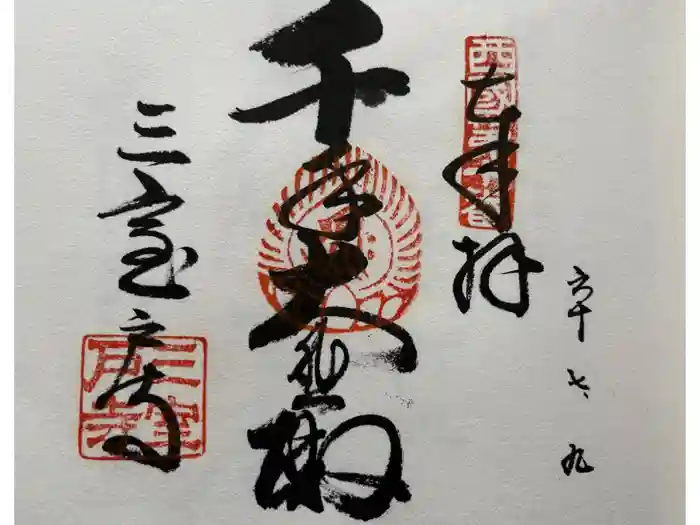 西國第十番
奉拝
六十、七、九
千手大悲殿
三室戸寺
三室
戸寺